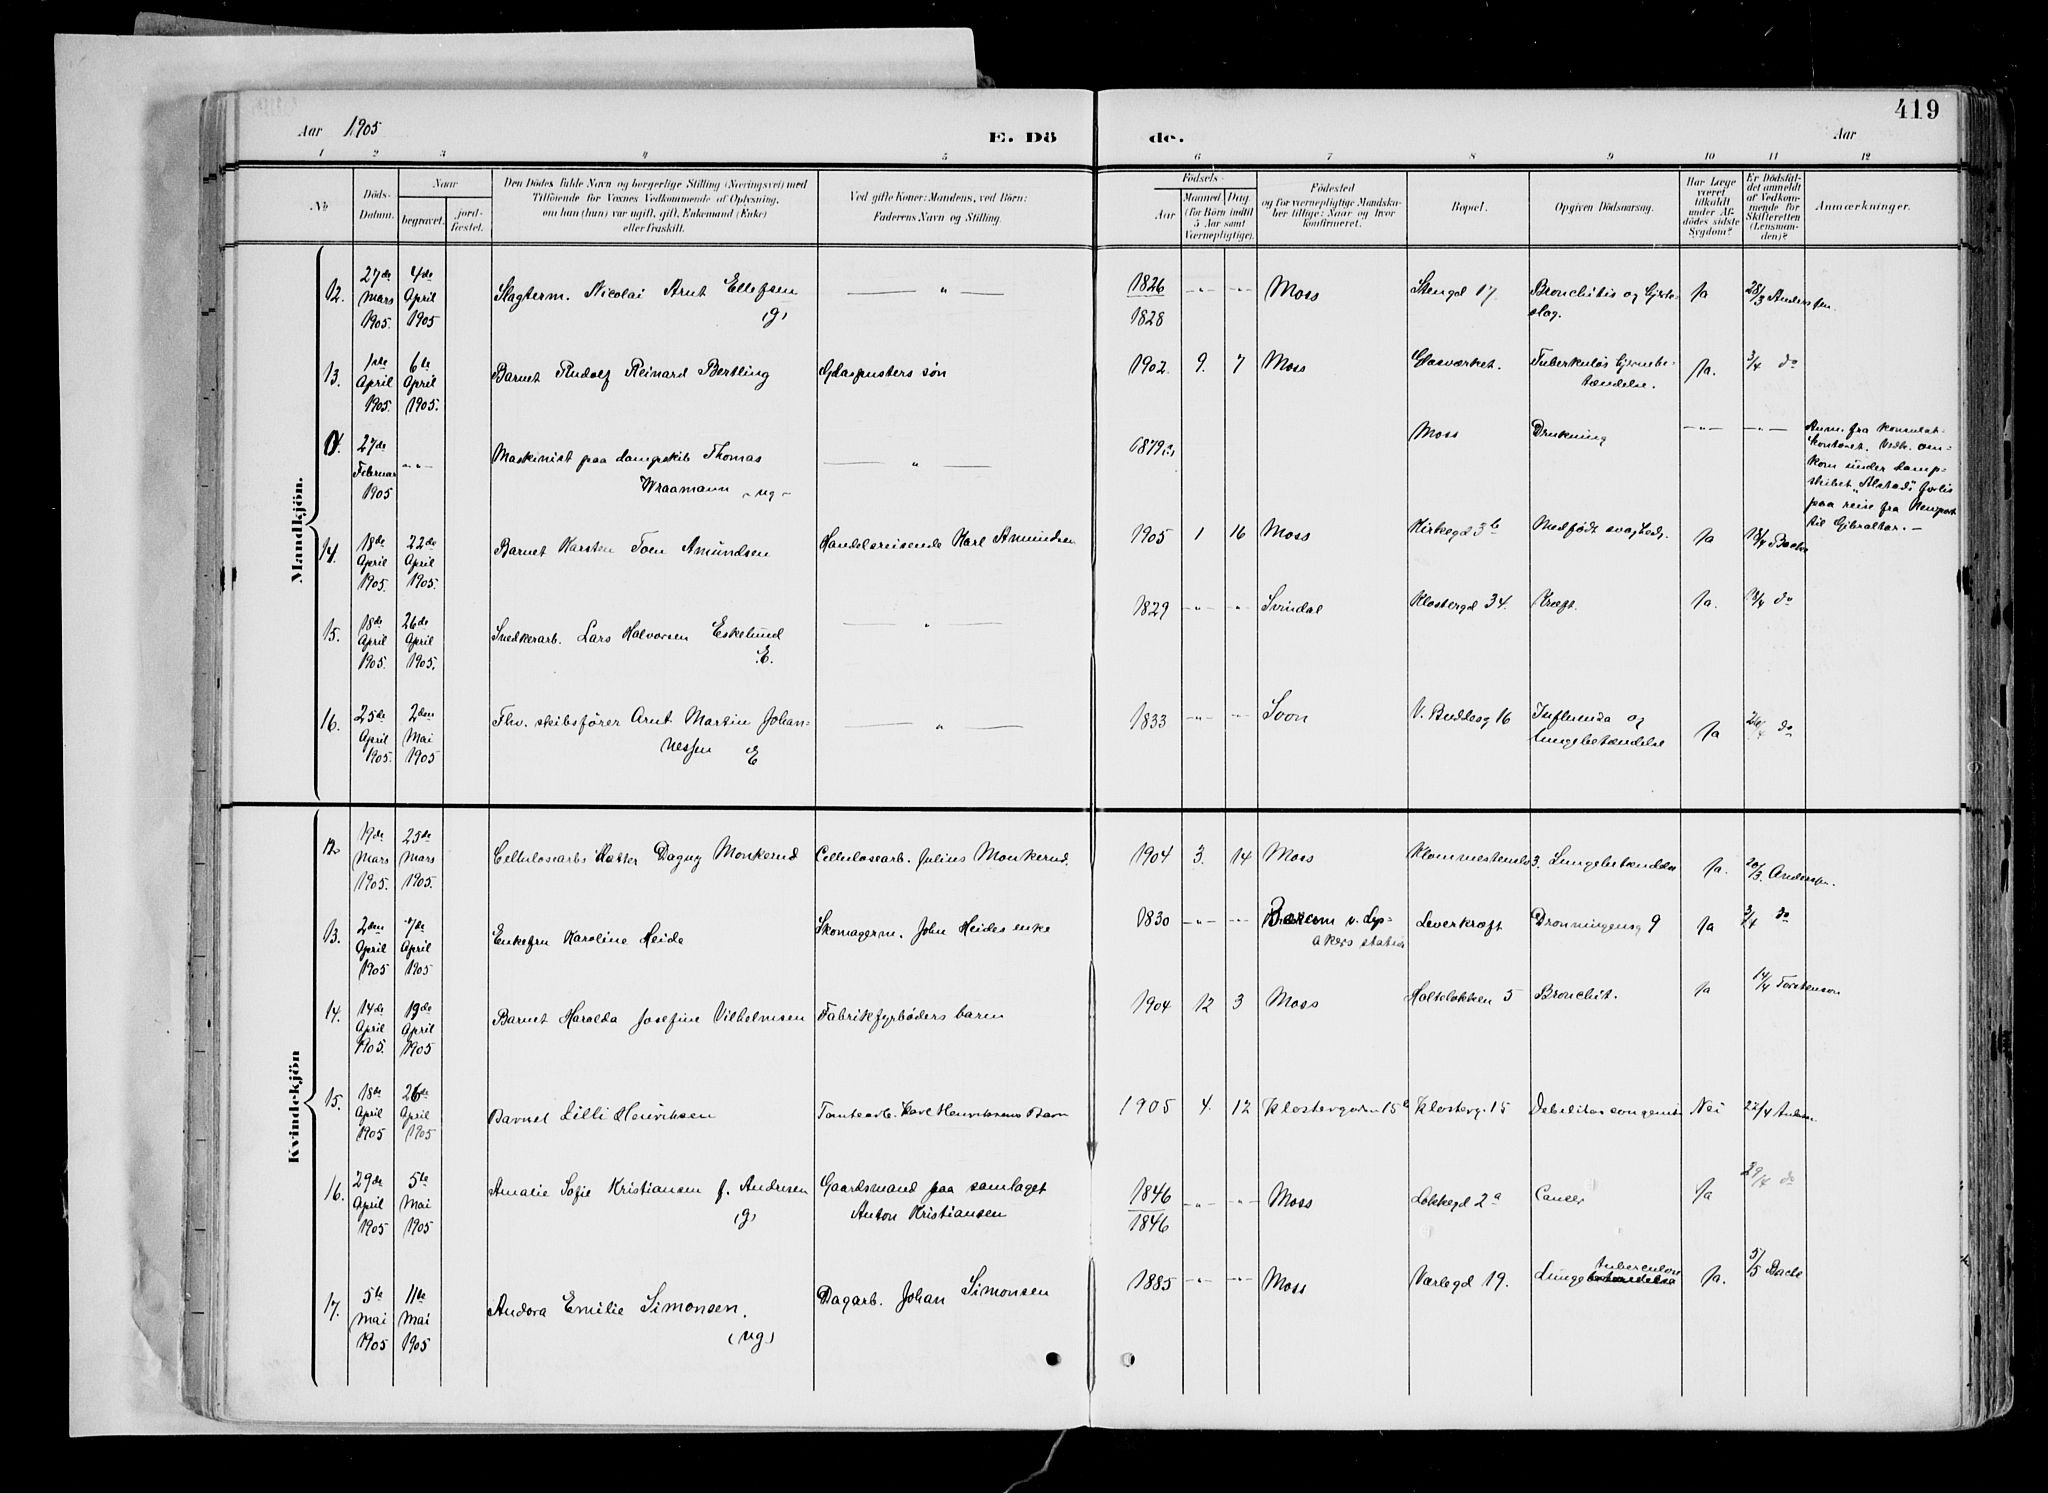 419
Aar 1905 E. Dö de. Aar
1 2 3 4 5 6 7 8 9 10 11 12
No.
Döds-
Datum.
Naar
begravet.
jord-
fæstet.
Den Dödes fulde Navn og borgerlige Stilling (Næringsvei) med
Tilföiende for Voxnes Vedkommende af Oplysning,
om han (hun) var ugift, gift, Enkemand (Enke)
eller fraskilt.
Ved gifte Koner: Mandens, ved Börn:
Faderens Navn og Stilling.
Födsels-
Aar
Maaned Dag
(for Börn indtil
5 Aar samt
Værnepligtige).
Födested
og for værnepligtige Mandskaber tillige: Naar og hvor
konfirmeret.
Bopæl.
Opgiven Dödsaarsag.
Har Læge
været
tilkaldt
under Af-
dödes sidste
Sygdom?
Er Dödsfal-
det anmeldt
af Vedkom-
mende for
Skifteretten
(Lensman-
den)?
Anmærkninger.
Mandkjön.
12. 27de Mars 1905. 4de April 1905 Slagterm. Nicolai Arnt Ellefsen (g) — " — 1826 1828 - " - - " - Moss Stengd 17 Bronchitis og Hjerte-
slag. Ja 28/3 Anderssen.
13. 1ste April 1905. 6te April 1905. Barnet Rudolf Reinard Bertling Glaspusters søn 1902. 9. 7 Moss Glasværket. Tuberkuløs Hjernebe-
tændelse. Ja. 3/4 do
0. 27de Februar 1905 - " - Maskinist paa dampskib Thomas
Wraamann - ug - — " — 1879(?) Moss Drukning - " - - " - Anm. fra Konsulat-
kontoret. Vedk. om-
kom under damp-
skibet "Alstad's" forlis
paa reise fra Newport
til Gibraltar. -
14. 18de April 1905. 22de April 1905. Barnet Karsten Toen Amundsen Handelsreisende Karl Amundsen 1905 1 16 Moss Kirkegd 3b Medfödt svaghed. Ja 18/4 Bache
15. 18de April 1905. 26de April 1905. Snedkerarb. Lars Halvorsen Eskelund
E. — " — 1829 - " - - " - Svindal Klostergd 34. Kræft. Ja. 19/4 do
16. 25de April 1905. 2den Mai 1905 Fhv. skibsfører Arnt Martin Johan-
nessen E — " — 1833 - " - - " - Soon V. Budleig 16 Influenza og
Lungebetændelse Ja 26/4 do
Kvindekjön
12. 19de Mars 1905. 25de Mars 1905. Cellulosearbs Datter Dagny Monkerud Cellulosearb. Julius Monkerud. 1904 3. 14 Moss 3. Lungebetændelse Ja. 20/3 Anderssen.
13. 2den April 1905 7de April 1905 Enkefru Karoline Heide Skomagerm. John Heides enke 1830 - " - - " - Bærum v. Lys-
akers station Leverkræft Dronningensg 9 Ja 3/4 do
14. 14de April 1905. 19de April 1905 Barnet Haralda Josefine Vilhelmsen Fabrikfyrbøders barn 1904 12 3 Moss Holteløkken 5 Bronchit. Ja 14/4 Torstenson
15. 18de April 1905 26de April 1905 Barnet Lilli Henriksen Tomtearb. Karl Henriksens Barn 1905 4. 12 Klostergaden 15b Klosterg. 15 Debilitas congenita Nei 22/4 Anders.
16. 29de April 1905 5te Mai 1905 Amalie Sofie Kristiansen f. Andresen
(g) Gaardsmand paa samlaget
Anton Kristiansen 1846 1846 - " - - " - Moss Løkkegd 2a Cancer Ja 29/4 do
17. 5te Mai 1905 11te Mai 1905 Andora Emilie Simonsen.
(ug) Dagarb. Johan Simonsen 1885 - " - - " - Moss Værlegd 19. Lunge betændelse tuberculose Ja. 5/5 Bache